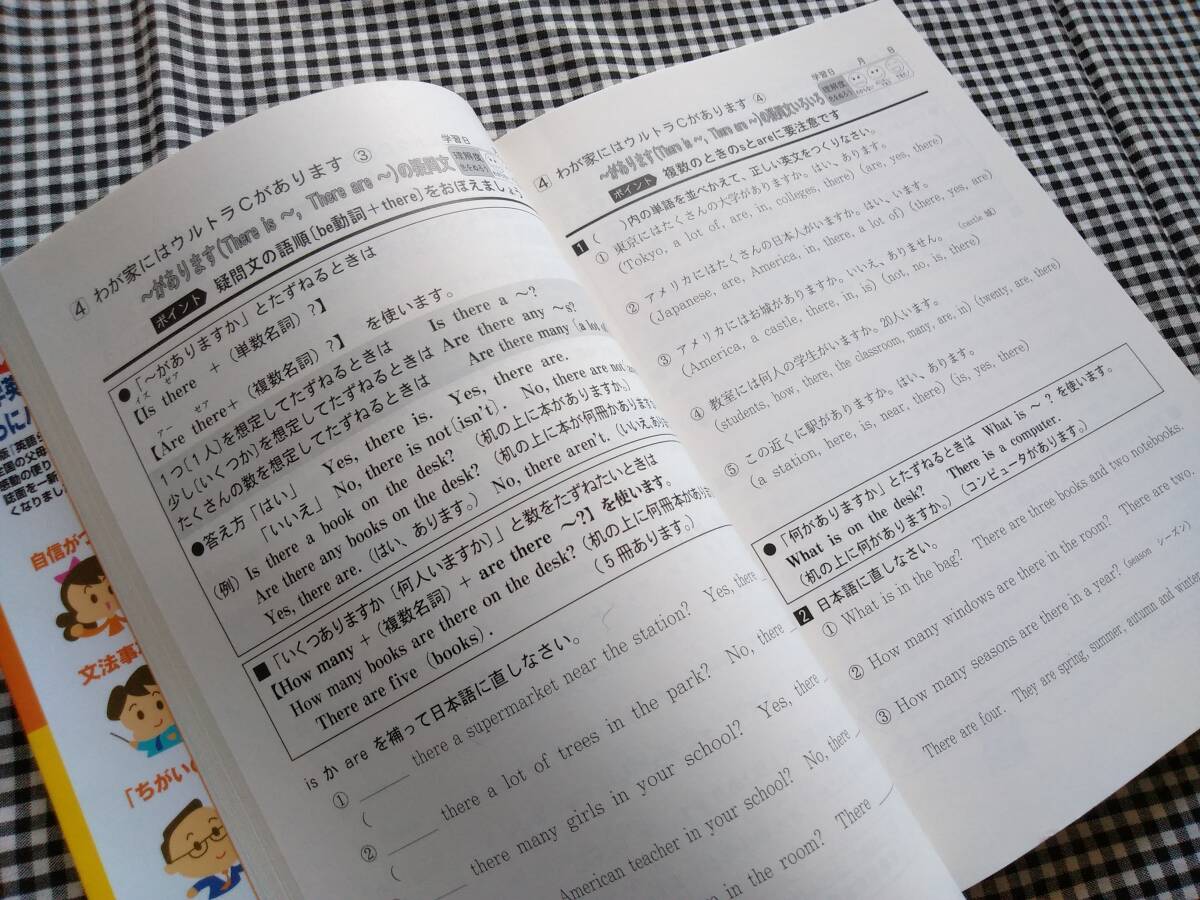 学習日
④ わが家にはウルトラCがあります ③
~があります(There is ~, There are ~)の疑問文
ポイント 疑問文の語順〔be動詞+there〕をおぼえましょう
●「~がありますか」とたずねるときは
イズ ゼア
【Is there + (単数名詞) ?】
アー ゼア
【Are there+ (複数名詞) ?】 を使います。
1つ[1人]を想定してたずねるときは Is there a ~?
少し[いくつか]を想定してたずねるときは Are there any ~s?
たくさんの数を想定してたずねるときは Are there many (a lot of
●答え方「はい」 Yes, there is. Yes, there are.
「いいえ」 No, there is not (isn't). No, there are not
(例) Is there a book on the desk? (机の上に本がありますか。)
Are there any books on the desk? (机の上に本が何冊かありますか
Yes, there are. (はい、あります。) No, there aren't. (いいえ、あり
■「いくつありますか[何人いますか]」と数をたずねたいときは
【How many + (複数名詞) + are there ~?】を使います。
How many books are there on the desk? (机の上に何冊本があり
There are five (books). (5冊あります。)
is か are を補って日本語に直しなさい。
① ____ there a supermarket near the station? Yes, there
(
② ____ there a lot of trees in the park? No, there
(
____ there many girls in your school? Yes, there
American teacher in your school? No, there
in the room? There
学習日 月 日
理解度
④ わが家にはウルトラCがあります ④
~があります(There is ~, There are ~)の疑問文いろいろ
ポイント 複数のときのsとareに要注意です
1 ( )内の単語を並べかえて、正しい英文をつくりなさい。
① 東京にはたくさんの大学がありますか。はい、あります。
(Tokyo, a lot of, are, in, colleges, there) (are, yes, there)
② アメリカにはたくさんの日本人がいますか。はい、います。
(Japanese, are, America, in, there, a lot of) (there, yes, are)
③ アメリカにはお城がありますか。いいえ、ありません。 (castle 城)
(America, a castle, there, in, is) (not, no, is, there)
④ 教室には何人の学生がいますか。20人います。
(students, how, there, the classroom, many, are, in) (twenty, are, there)
⑤ この近くに駅がありますか。はい、あります。
(a station, here, is, near, there) (is, yes, there)
●「何がありますか」とたずねるときは What is ~ ? を使います。
What is on the desk? There is a computer.
(机の上に何がありますか。) (コンピュータがあります。)
2 日本語に直しなさい。
① What is in the bag? There are three books and two notebooks.
② How many windows are there in the room? There are two.
③ How many seasons are there in a year? (season シーズン)
There are four. They are spring, summer, autumn and winter
自信がつ
文法事
「ちがいの